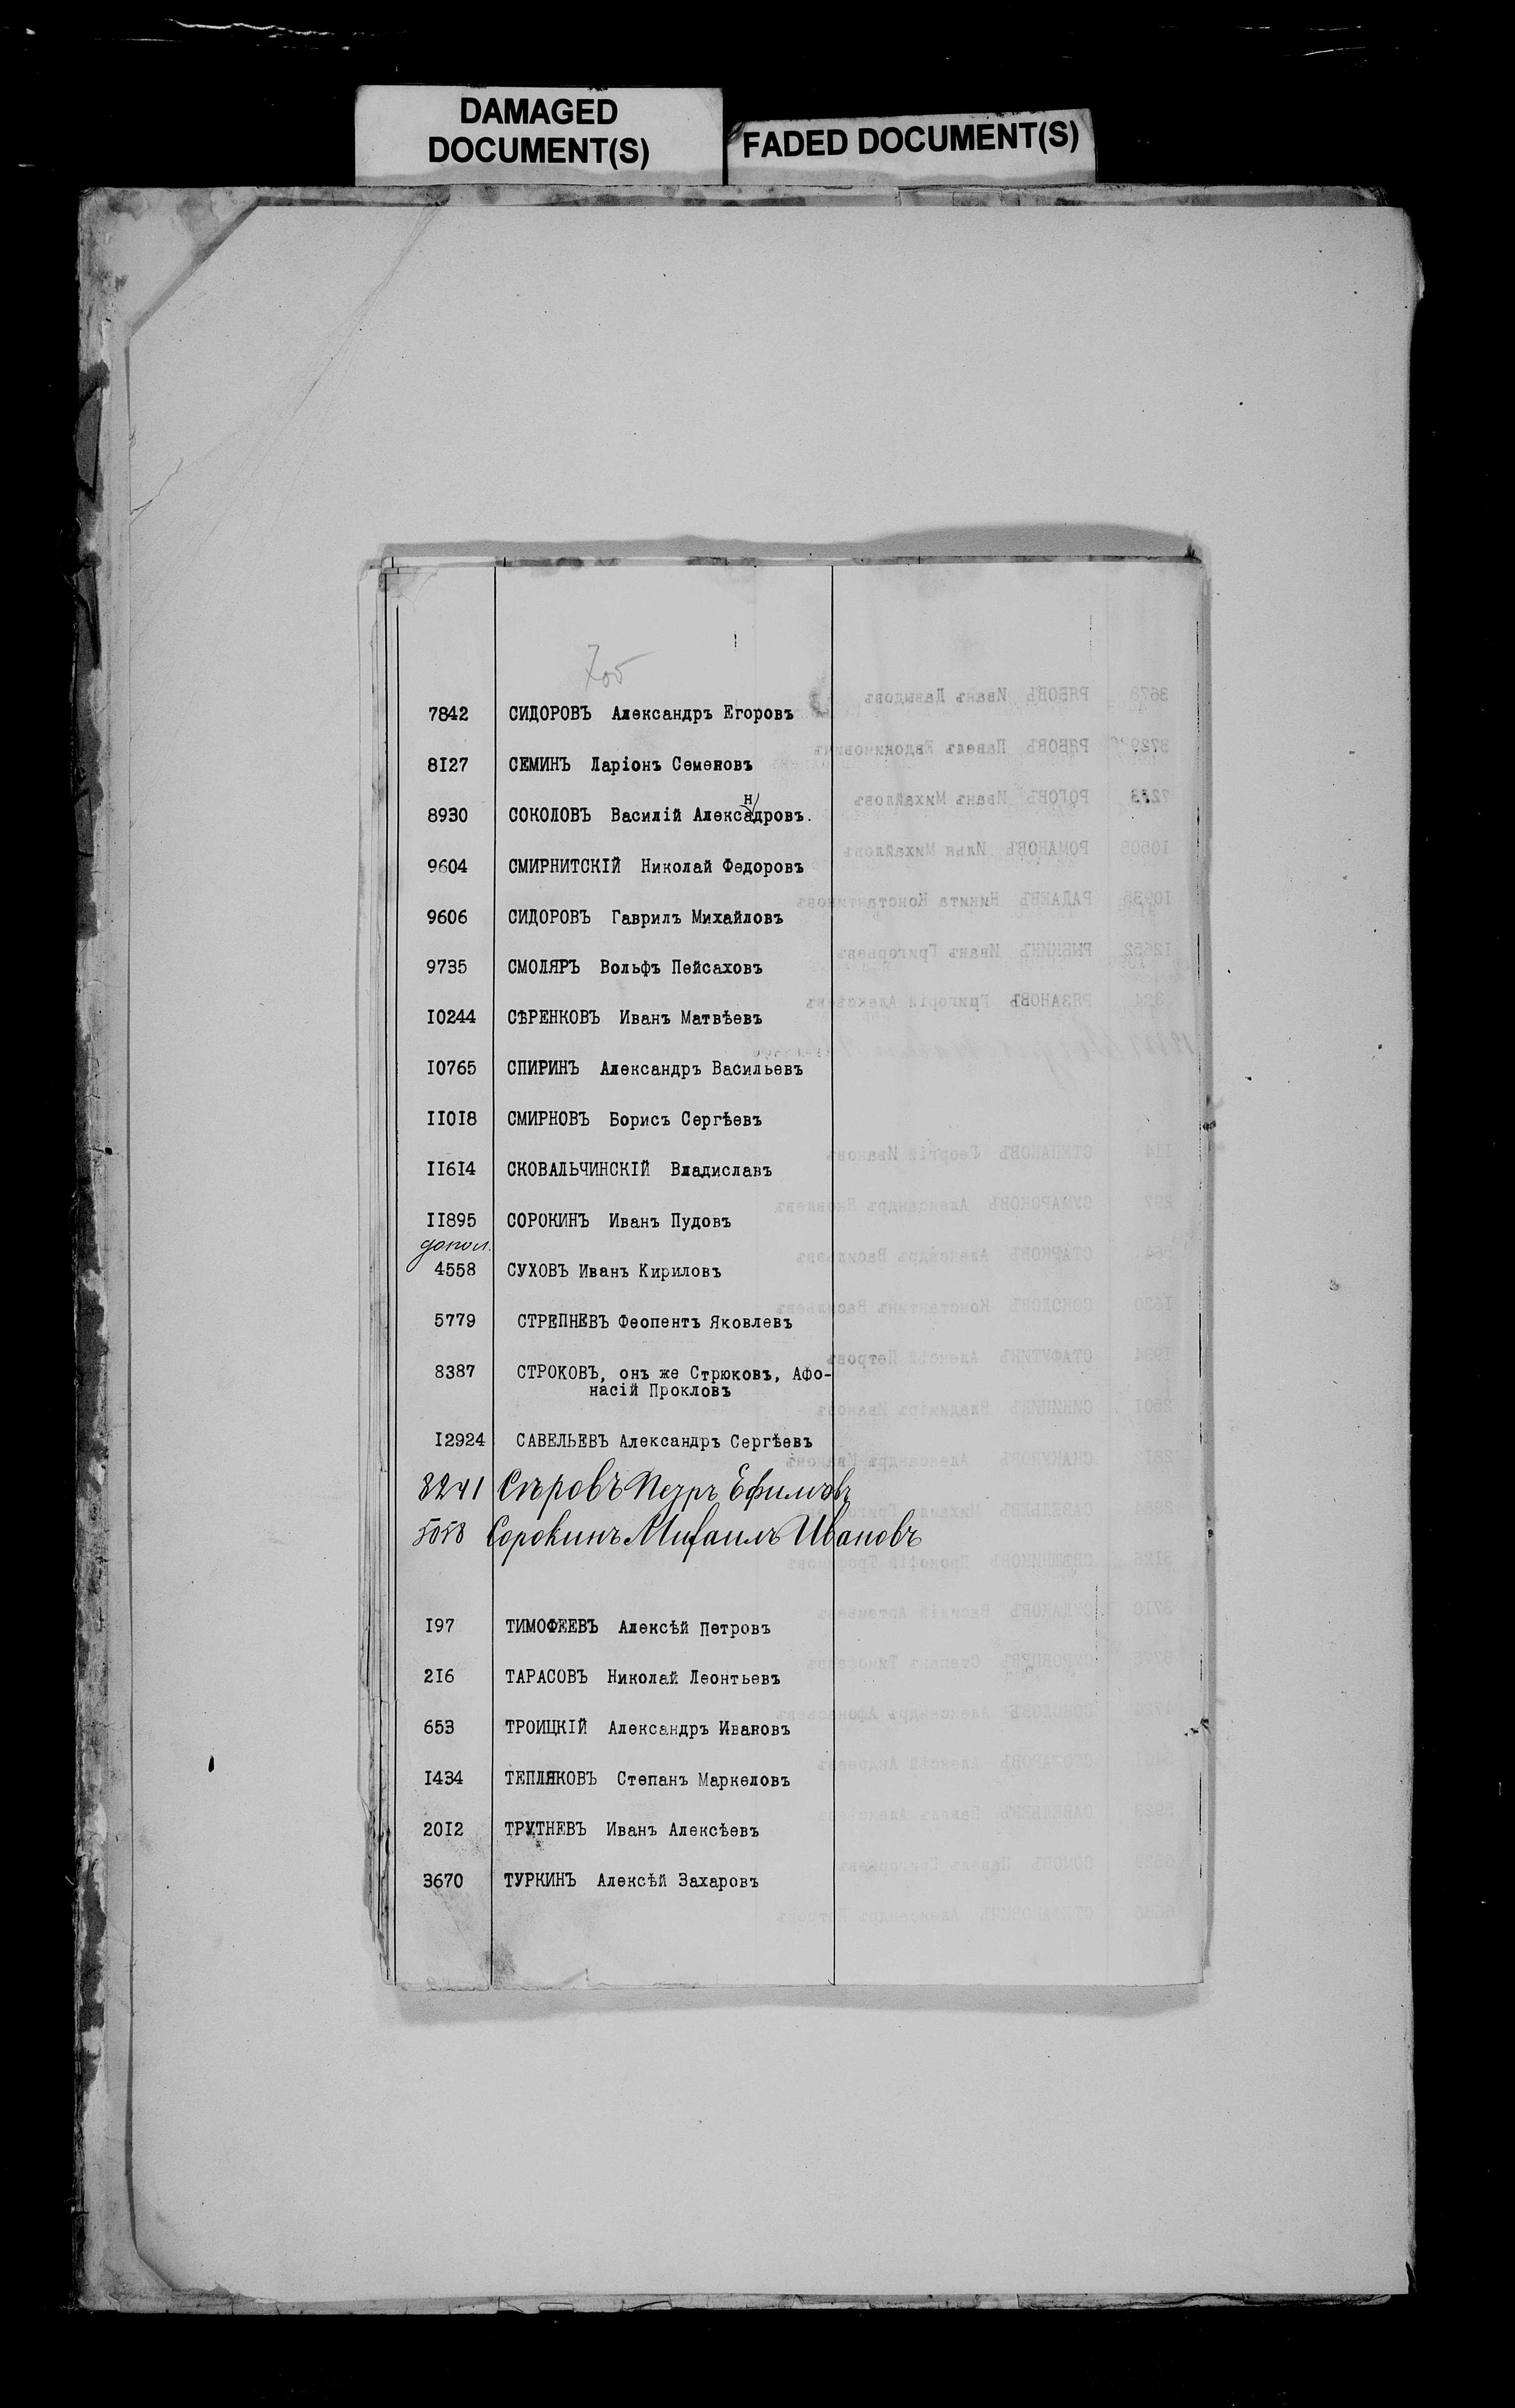 DAMAGED
DOCUMENT(S)
FADED DOCUMENT(S)
7842 СИДОРОВЪ Александръ Егоровъ
8I27 СЕМИНЪ Ларіонъ Семеновъ
н
8930 СОКОЛОВЪ Василій Алексадровъ.
9604 СМИРНИТСКІЙ Николай Федоровъ
9606 СИДОРОВЪ Гаврилъ Михайловъ
9735 СМОЛЯРЪ Вольфъ Пейсаховъ
I0244 СѢРЕНКОВЪ Иванъ Матвѣевъ
I0765 СПИРИНЪ Александръ Васильевъ
II0I8 СМИРНОВЪ Борисъ Сергѣевъ
II6I4 СКОВАЛЬЧИНСКІЙ Владиславъ
II895 СОРОКИНЪ Иванъ Пудовъ
допол.
4558 СУХОВЪ Иванъ Кириловъ
5779 СТРЕПНЕВЪ Феопентъ Яковлевъ
8387 СТРОКОВЪ, онъ же Стрюковъ, Афо-
насій Прокловъ
I2924 САВЕЛЬЕВЪ Александръ Сергѣевъ
8241 Сѣровъ Петръ Ефимовъ
5058 Сорокинъ Михаилъ Ивановъ
I97 ТИМОФЕЕВЪ Алексѣй Петровъ
2I6 ТАРАСОВЪ Николай Леонтьевъ
653 ТРОИЦКІЙ Александръ Ивановъ
I434 ТЕПЛЯКОВЪ Степанъ Маркеловъ
20I2 ТРУТНЕВЪ Иванъ Алексѣевъ
3670 ТУРКИНЪ Алексѣй Захаровъ